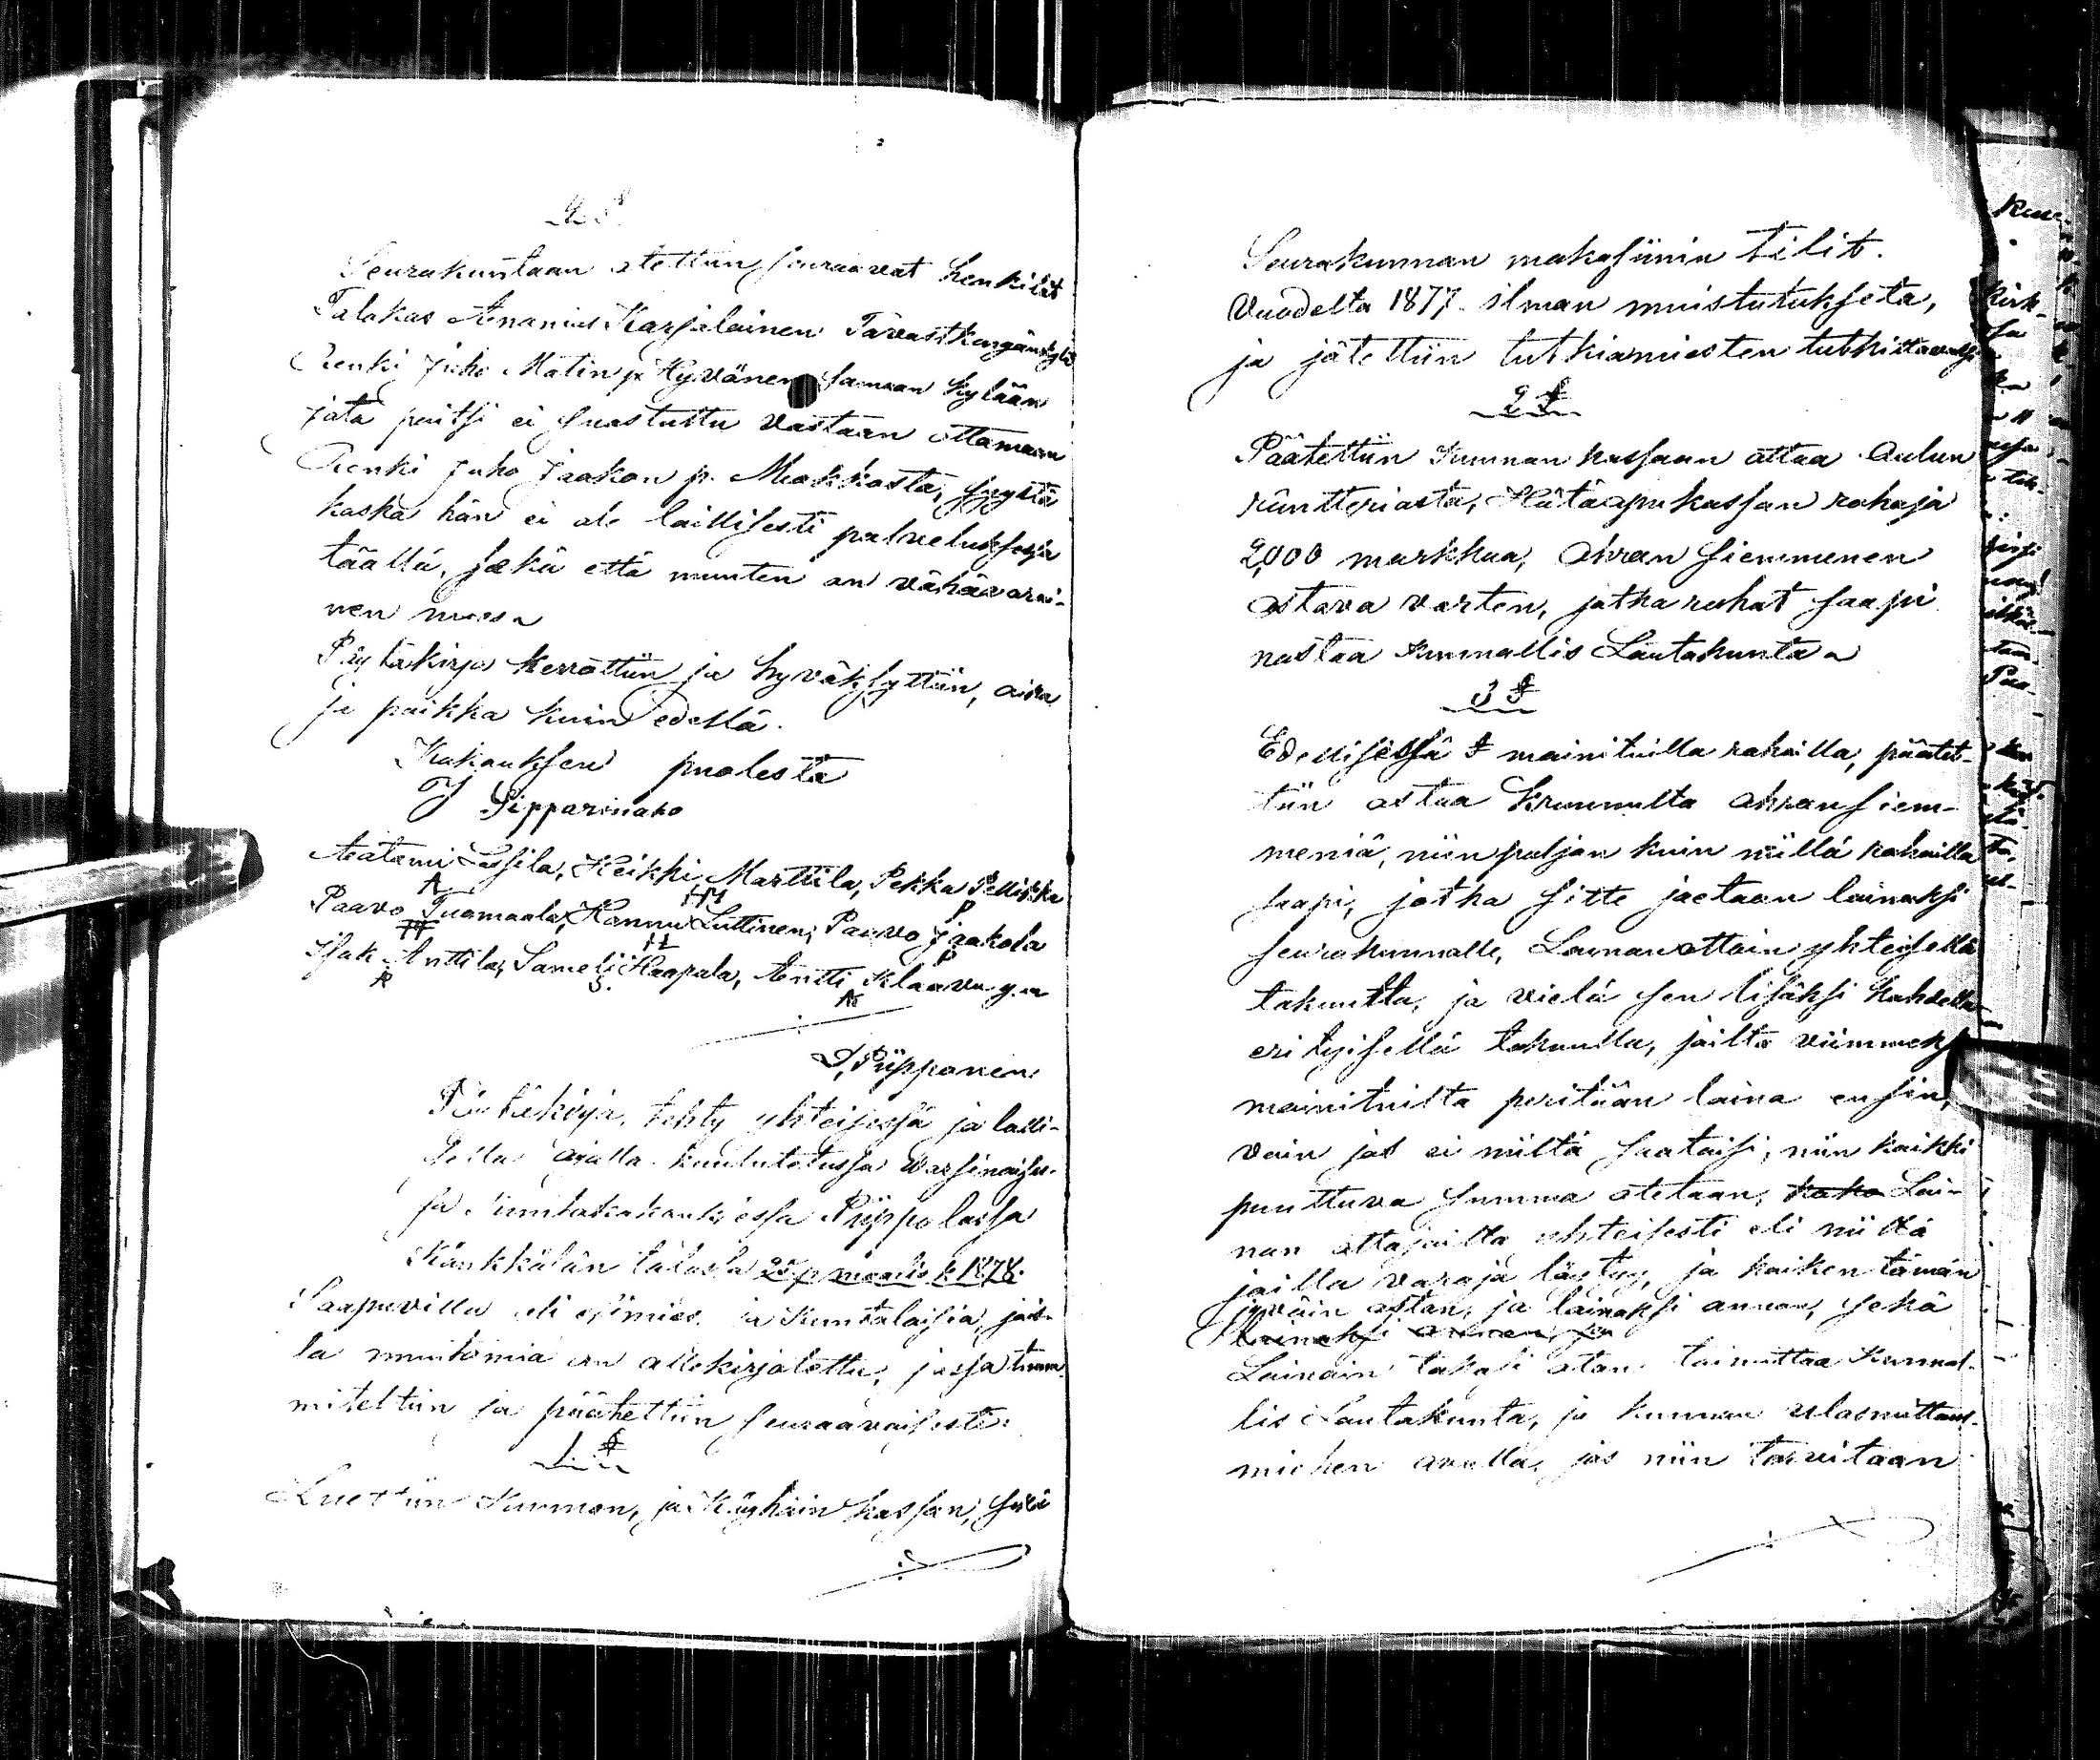 2 §
Seurakuntaan otettiin seuraavat henkilöt
Talokas Ananias Karjalainen Tavastkengänkylä
Renki Juho Matin p. Hyvänen samaan kylään
jota paitsi ei suostuttu vastaan ottamaan
Renki Juho Jaakon p. Mookkosta, syystä
koska hän ei ole laillisesti palveluksessa
täällä, sekä että muuten on vähävarai-
nen mies
Pöytäkirja kerrottiin ja hyväksyttiin, aika
ja paikka kuin edellä.
Kokouksen puolesta
J Sipparinaho
Aatami Lassila, Heikki Marttila, Pekka Pellikka
A HM P
Paavo Tuomaala, Hannu Luttinen, Paavo Jaakola
PT HL P
Isak Anttila, Sameli Haapala, Antti Klaavu y.m
A S. AK
Piipponen
Pöytäkirja, tehty yhteisessä ja lailli-
sella ajalla kuulutetussa varsinaises-
sa kuntakokouksessa Piippolassa
Känkkälän talossa 25 p maalis k 1878.
Saapuvilla oli esimies ja Kuntalaisia, jois-
ta muutamia on allekirjoitettu, jossa tuum-
miteltiin ja päätettiin seuraavaisesti:
1 §
Luettiin Kunnan, ja Köyhäin kassan, sekä
Seurakunnan makasiinin tilit.
Vuodelta 1877. ilman muistutuksetta,
ja jätettiin tutkiamiesten tutkittavaksi
2 §
Päätettiin Kunnan kassaan ottaa Oulun
ränttteriasta, Hätäapukassan rahoja
2,000 markkaa, Ohran siemmenen
ostoa varten, jotka rahat saapi
nostaa Kunnallis Lautakunta
3 §
Edellisessä § mainituilla rahoilla, päätet-
tiin ostaa Kruunulta ohran siem-
meniä, niin paljon kuin niillä rahoilla
saapi, jotka sitte jaetaan lainaksi
seurakunnalle, Lainan ottain yhteisellä
takuulla, ja vielä sen lisäksi kahdella
erityisellä takuulla, joilta viimmeksi
mainituilta peritään laina ensin,
vain jos ei niiltä saataisi, niin kaikki
puuttuva summa otetaan, koko Lai-
nan ottajoilta yhteisesti eli niiltä
joilla varoja löytyy, ja kaiken tämän
jyväin oston, ja lainaksi annon, sekä
lainaksi annon, ja
Lainain takasi oton toimittaa Kunnal-
lis Lautakunta, ja kunnan ulosmittaus-
miehen avulla, jos niin tarvitaan